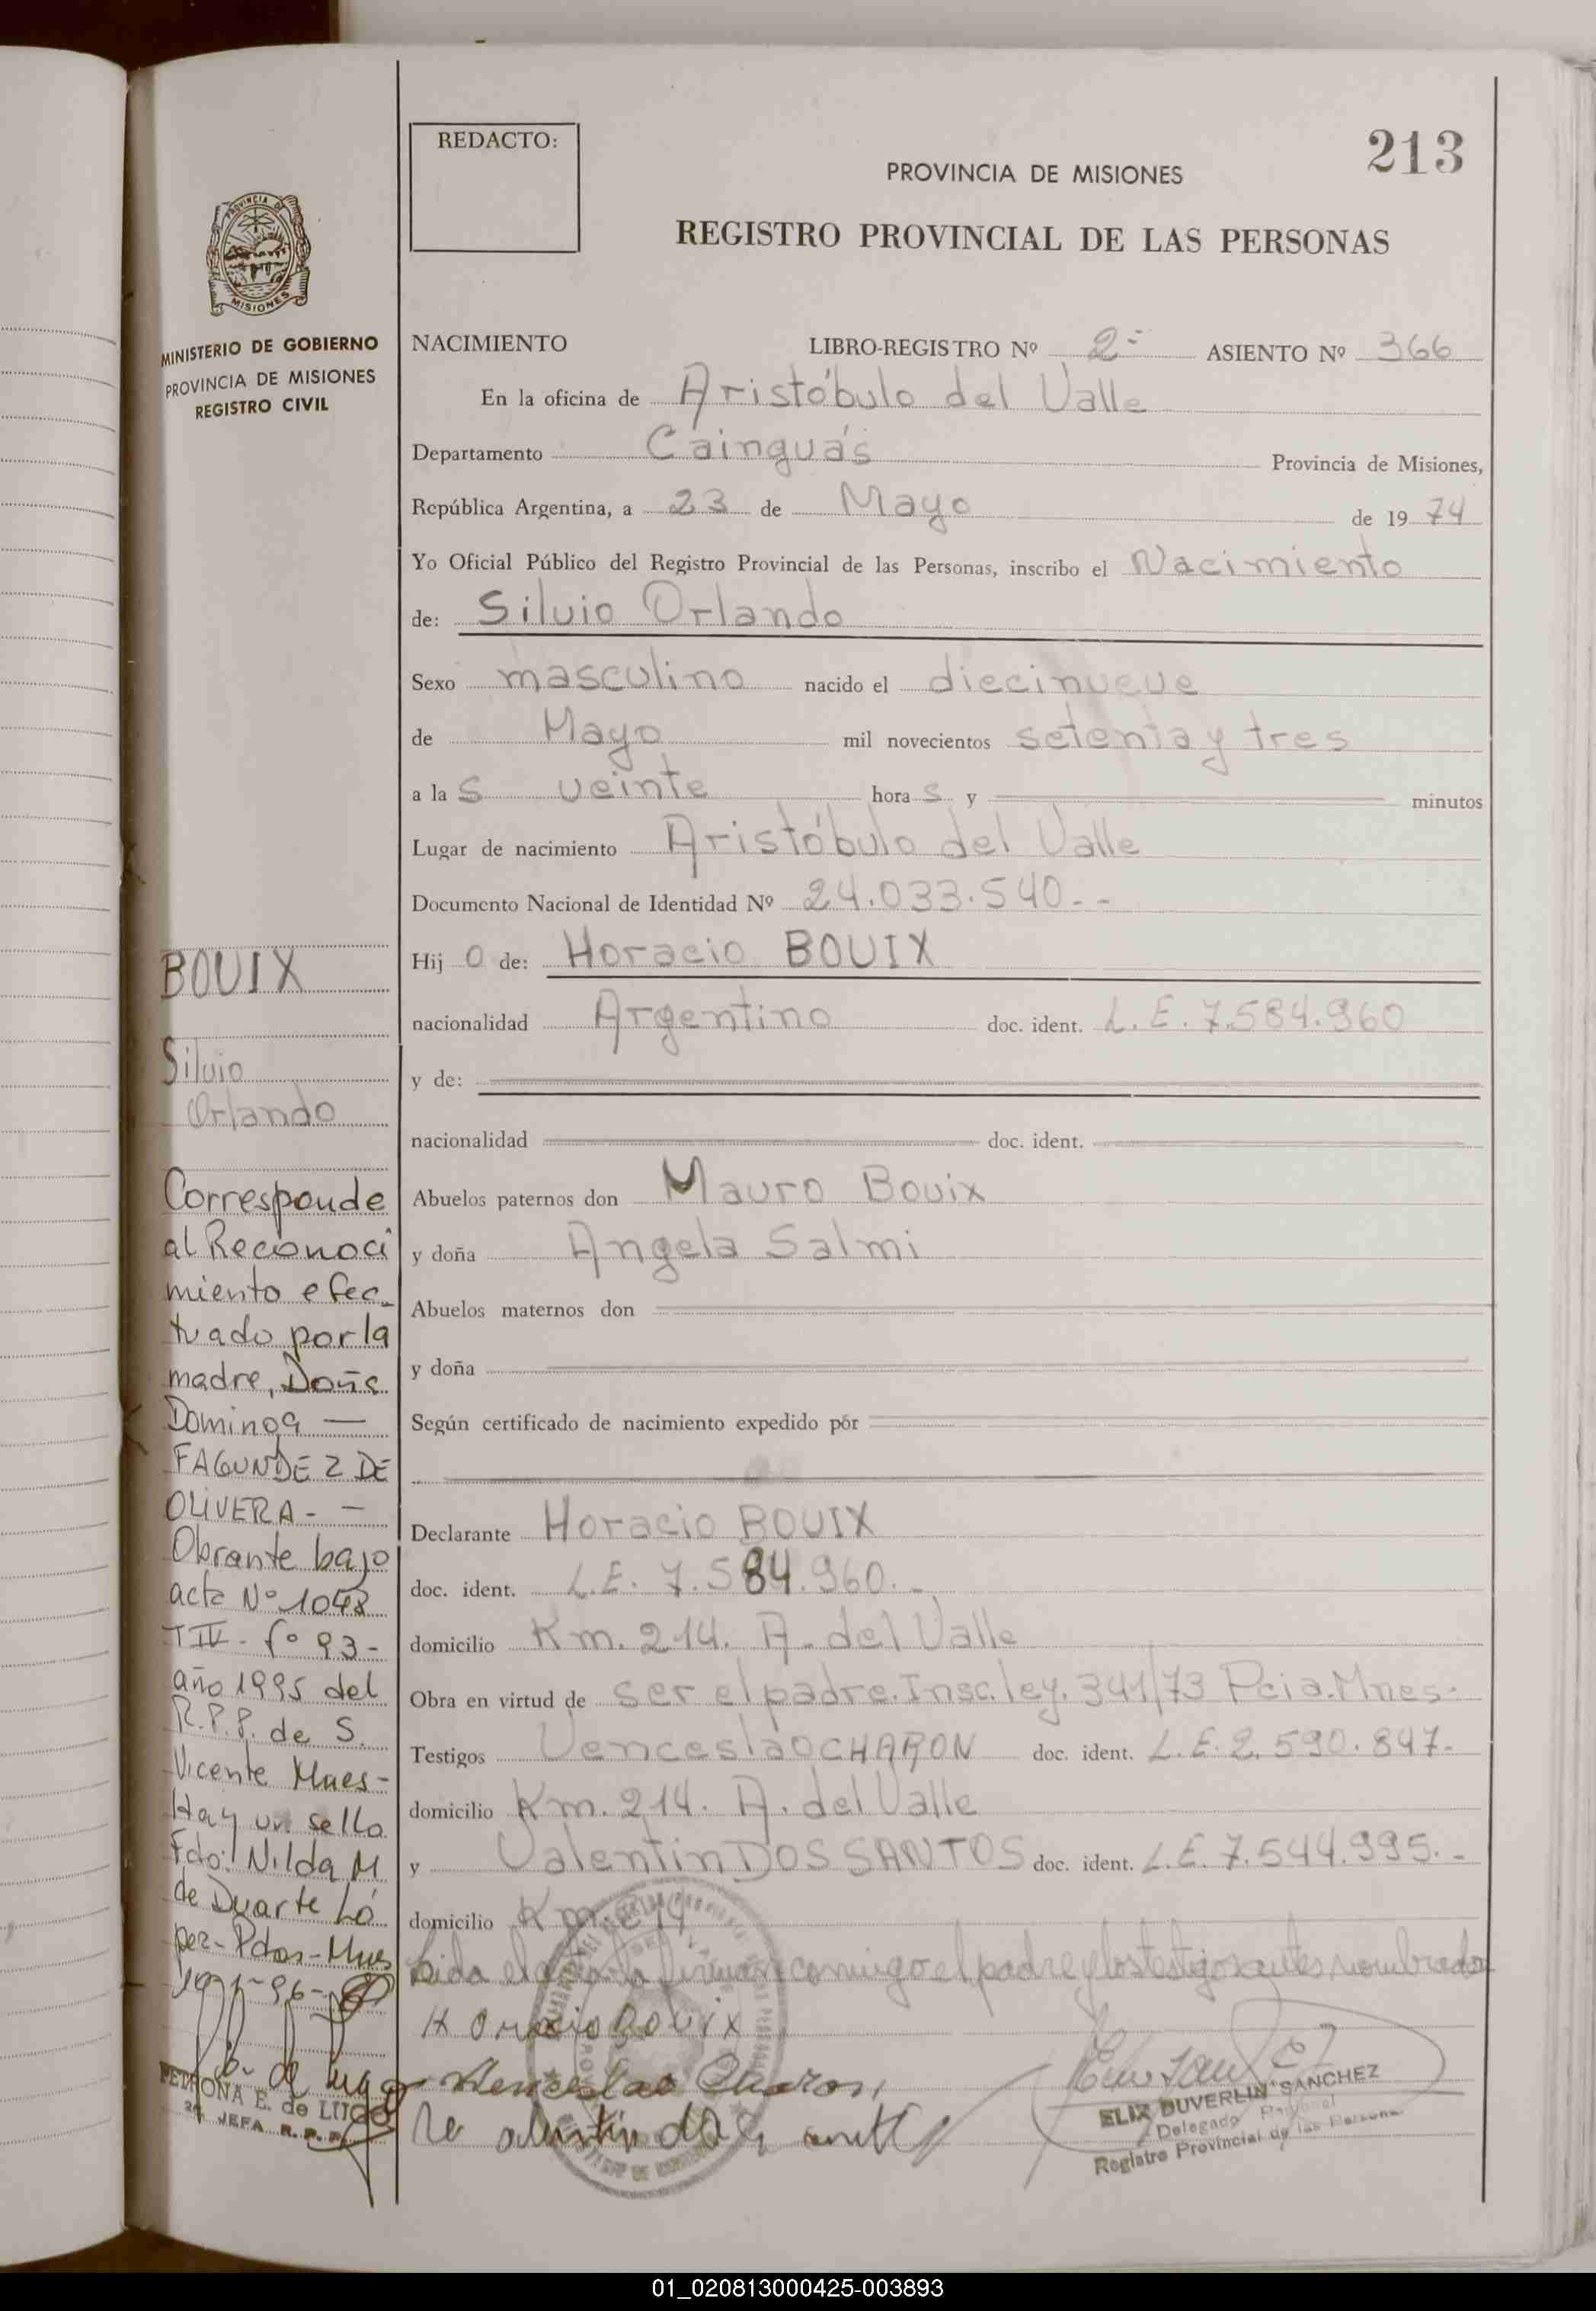 REDACTO:
213
PROVINCIA DE MISIONES
REGISTRO PROVINCIAL DE LAS PERSONAS
PROVINCIA DE
MISIONES
MINISTERIO DE GOBIERNO
PROVINCIA DE MISIONES
REGISTRO CIVIL
NACIMIENTO LIBRO-REGISTRO Nº 2- ASIENTO Nº 366
En la oficina de Aristóbulo del Valle
Departamento Cainguás Provincia de Misiones,
República Argentina, a 23 de Mayo de 1974
Yo Oficial Público del Registro Provincial de las Personas, inscribo el Nacimiento
de: Silvio Orlando
Sexo masculino nacido el diecinueve
de Mayo mil novecientos setenta y tres
a las veinte horas y minutos
Lugar de nacimiento Aristóbulo del Valle
Documento Nacional de Identidad Nº 24.033.540.--
Hijo de: Horacio BOUIX
nacionalidad Argentino doc. ident. L.E. 7.584.960
y de:
nacionalidad doc. ident.
Abuelos paternos don Mauro Bouix
y doña Angela Salmi
Abuelos maternos don
y doña
Según certificado de nacimiento expedido por
Declarante Horacio BOUIX
doc. ident. L.E. 7.584.960.-
domicilio Km. 214. A. del Valle
Obra en virtud de ser el padre. Insc. ley. 341/73 Pcia. Mnes.
Testigos Venceslao CHARON doc. ident. L.E. 2.590.847.-
domicilio Km. 214. A. del Valle
y Valentin DOS SANTOS doc. ident. L.E. 7.544.995.-
domicilio Km. 214
Leida el acta la firman conmigo el padre y los testigos antes nombrados
Horacio Bouix
Venceslao Charon
ELIX DUVERLIN SANCHEZ
Delegado
Registro Provincial de las Personas
BOUIX
Silvio
Orlando
Corresponde
al Reconoci
miento efec-
tuado por la
madre, Doña
Dominga —
FAGUNDEZ DE
OLIVERA- —
Obrante bajo
acta Nº 1048
T IV- fº 93-
año 1995 del
R.P.P. de S.
Vicente Mnes-
Hay un sello
Fdo: Nilda M
de Duarte Ló
pez- Pdas- Mnes
PETRONA E. de LUGO
JEFA R. P. P.
01_020813000425-003893